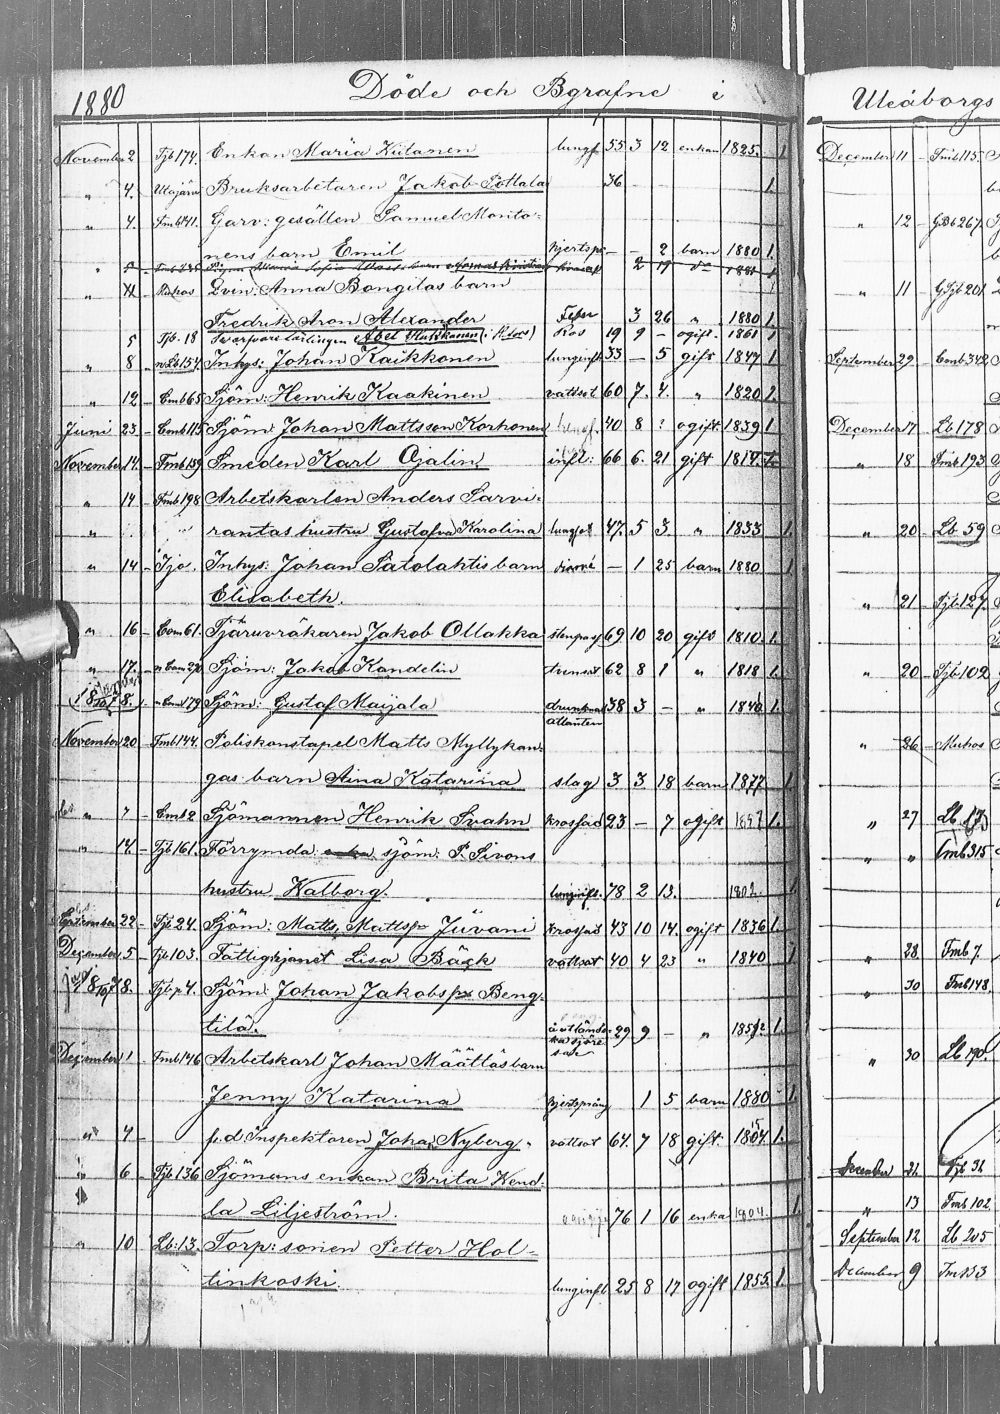 1880 Döde och Bgrafne i
November 2 Tjb 174. Enkan Maria Kiitanen lungf 55 3 12 enkan 1825. 1
" 4. Utajärvi Bruksarbetaren Jakob Pottala 36 1.
" 4. Fmb 141. Garv: gesällen Samuel Morito-
nens barn Emil hjertspr - - 2 barn 1880 1.
" Muhos Qvin: Anna Bongilas barn
Fredrik Aron Alexander Feber 3 26 " 1880 1.
5 Tjb. 18 Svarfvare lärlingen Abel Hukkanen Kos 19 9 - ogift. 1861 1
" 8 Lb 154. Inhys: Johan Kaikkonen lunginfl. 33 - 5 gift 1847 1.
" 12 - Cmb 65 Sjöm: Henrik Kaakinen vattsot 60 7. ?. " 1820 1.
Juni 23 - Comb 115 Sjöm: Johan Mattsson Korhonen 40 8 ? ogift. 1839 1
November 14. - Fmb 159 Smeden Karl Ojalin. infl: 66 6. 21 gift 1814.
" 14 - Fmb 198 Arbetskarlen Anders Sarvi-
" rantas hustru Gustafva Karolina lungsot 47. 5 3 " 1833 1.
" 14 - Ijo. Inhys: Johan Satolahtis barn diarré - 1 25 barn 1880 1.
Elisabeth.
" 16 - Com 61. Tjäruvräkaren Jakob Ollakka 69 10 20 gift 1810. 1.
" 17. - Com 270 Sjöm: Jakob Kandelin 62 8 1 " 1818 1.
18 10/7 8. Comb 179 Sjöm: Gustaf Maijala drunknad 38 3 - " 1840 1.
atlanten
November 20 - Fmb 144. Poliskonstapel Matts Myllykan-
gas barn Aina Katarina slag 3 3 18 barn 1877 1
" 7 - Cmb 2 Sjömannen Henrik Svahn krosfad 23 - 7 ogift 1857 1.
" 14. - Tjb 161. Förrymda sjöm: P. Sivons
hustru Walborg. lunginfl. 78 2 13. 1802. 1
September 22 - Tjb 24. Sjöm: Matts Mattsp Jüvani krosfad 43 10 14. ogift 1836 1.
December 5 - Tjb 103. Fattighjonet Lisa Bäck vattsot 40 4 23 " 1840 1
18 10/7 8. Tjb p 4. Sjöm: Johan Jakobsp Beng-
tilä. å utländs- 29 9 - " 185 1.
ka sjöre-
sor
December 1 - Fmb 146 Arbetskarl Johan Määttäs barn
Jenny Katarina hjertsprång 1 5 barn 1880 1.
" 4 - f.d Inspektoren Johan Nyberg. vattsot 64. 7 18 gift. 1 1.
" 6 - Tjb 136 Sjömans enkan Brita Kend-
la Liljeström. 76 1 16 enka 1804. 1.
" 10 Lb: 13. Torp: sonen Petter Hol-
tinkoski. lunginfl 25 8 17 ogift 1855. 1.
Uleåborgs
December 11 - Fmb 115.
" 12 - GBb 267.
" 11 - GTjb 201
September 29 - Comb 342
December 17 Lb 178
" 18 Fmb 193
" 20 - Lb 59
" 21 - Tjb 127
" 20 - Tjb 102
" 26 - Muhos
" 27 Lb 13
" " Cmb 315
" 28 Fmb 7.
" 30 Fmb 148.
" 30 Lb 190.
December 21 Tjb 31
" 13 Fmb 102
September 12 Lb 205
December 9 Fm 153